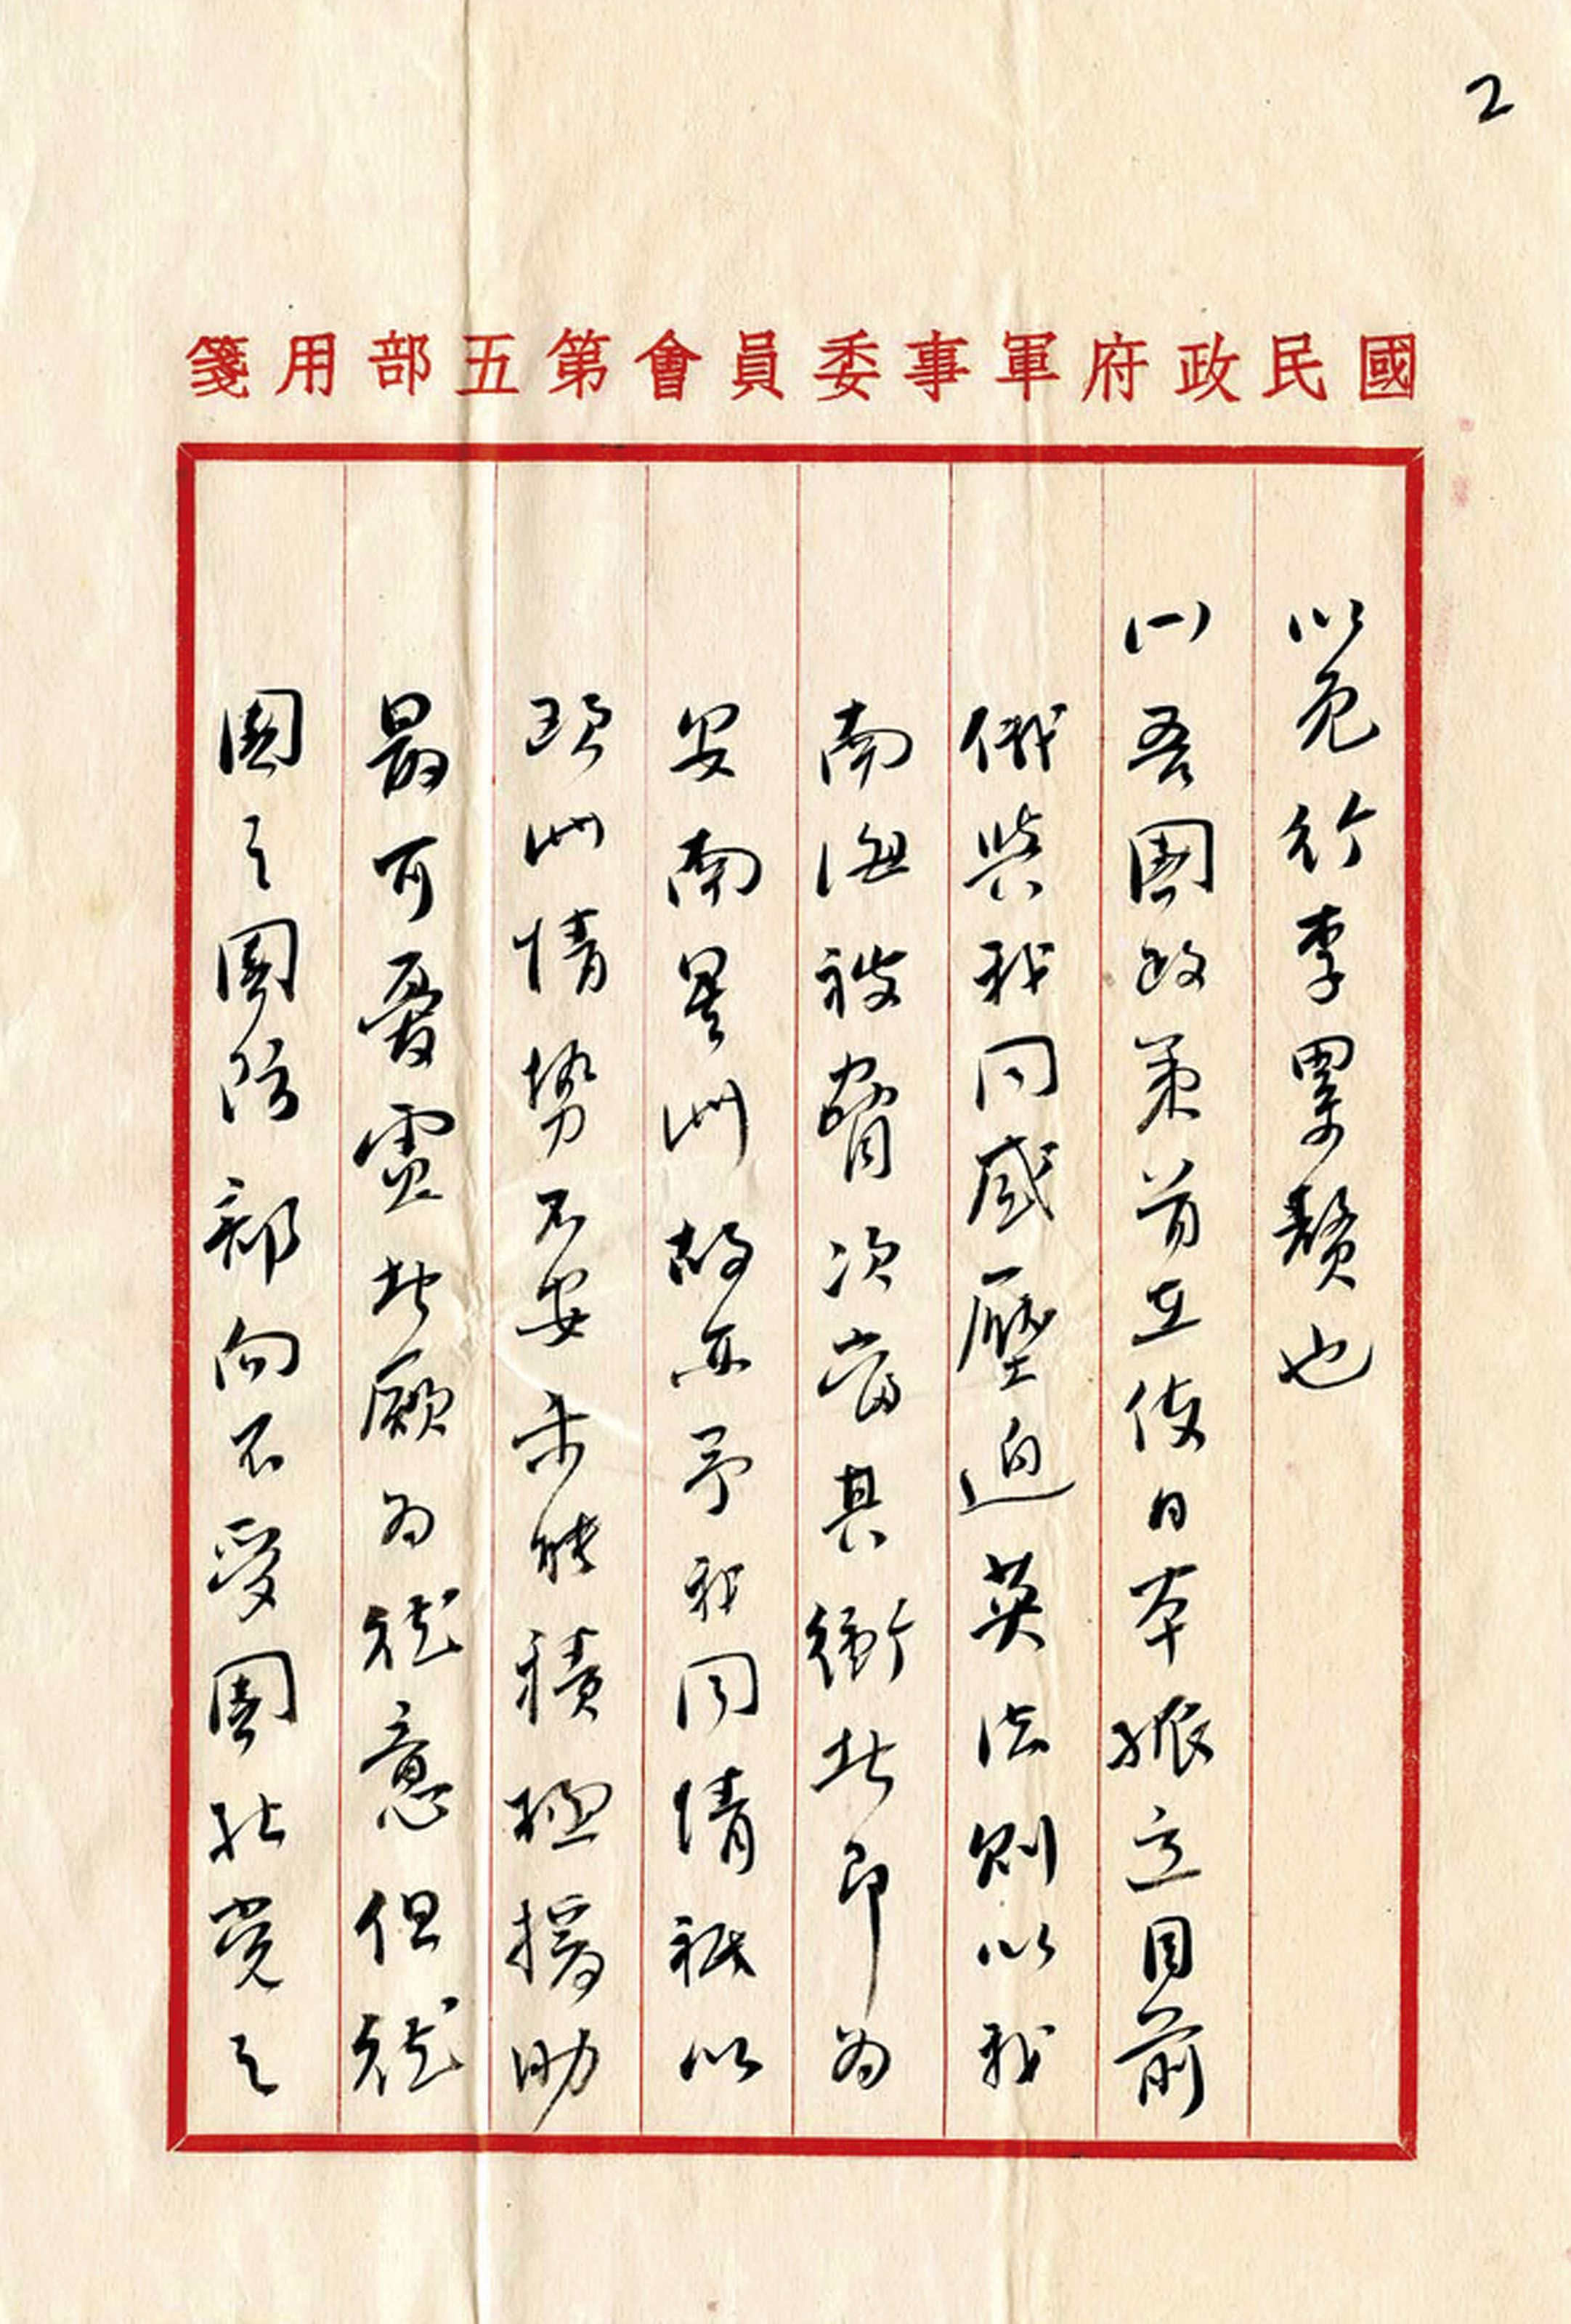 2
國民政府軍事委員會第五部用箋
以免行李累贅也
(一)吾國政策首在使日本孤立目前
俄與我同感壓迫英法則以我
南海被脅次當其衝此即為
安南星洲故亦予我同情祇以
歐洲情勢不安未能積極援助
最可憂慮者厥為德意但德
國之國防部向不受國社党之